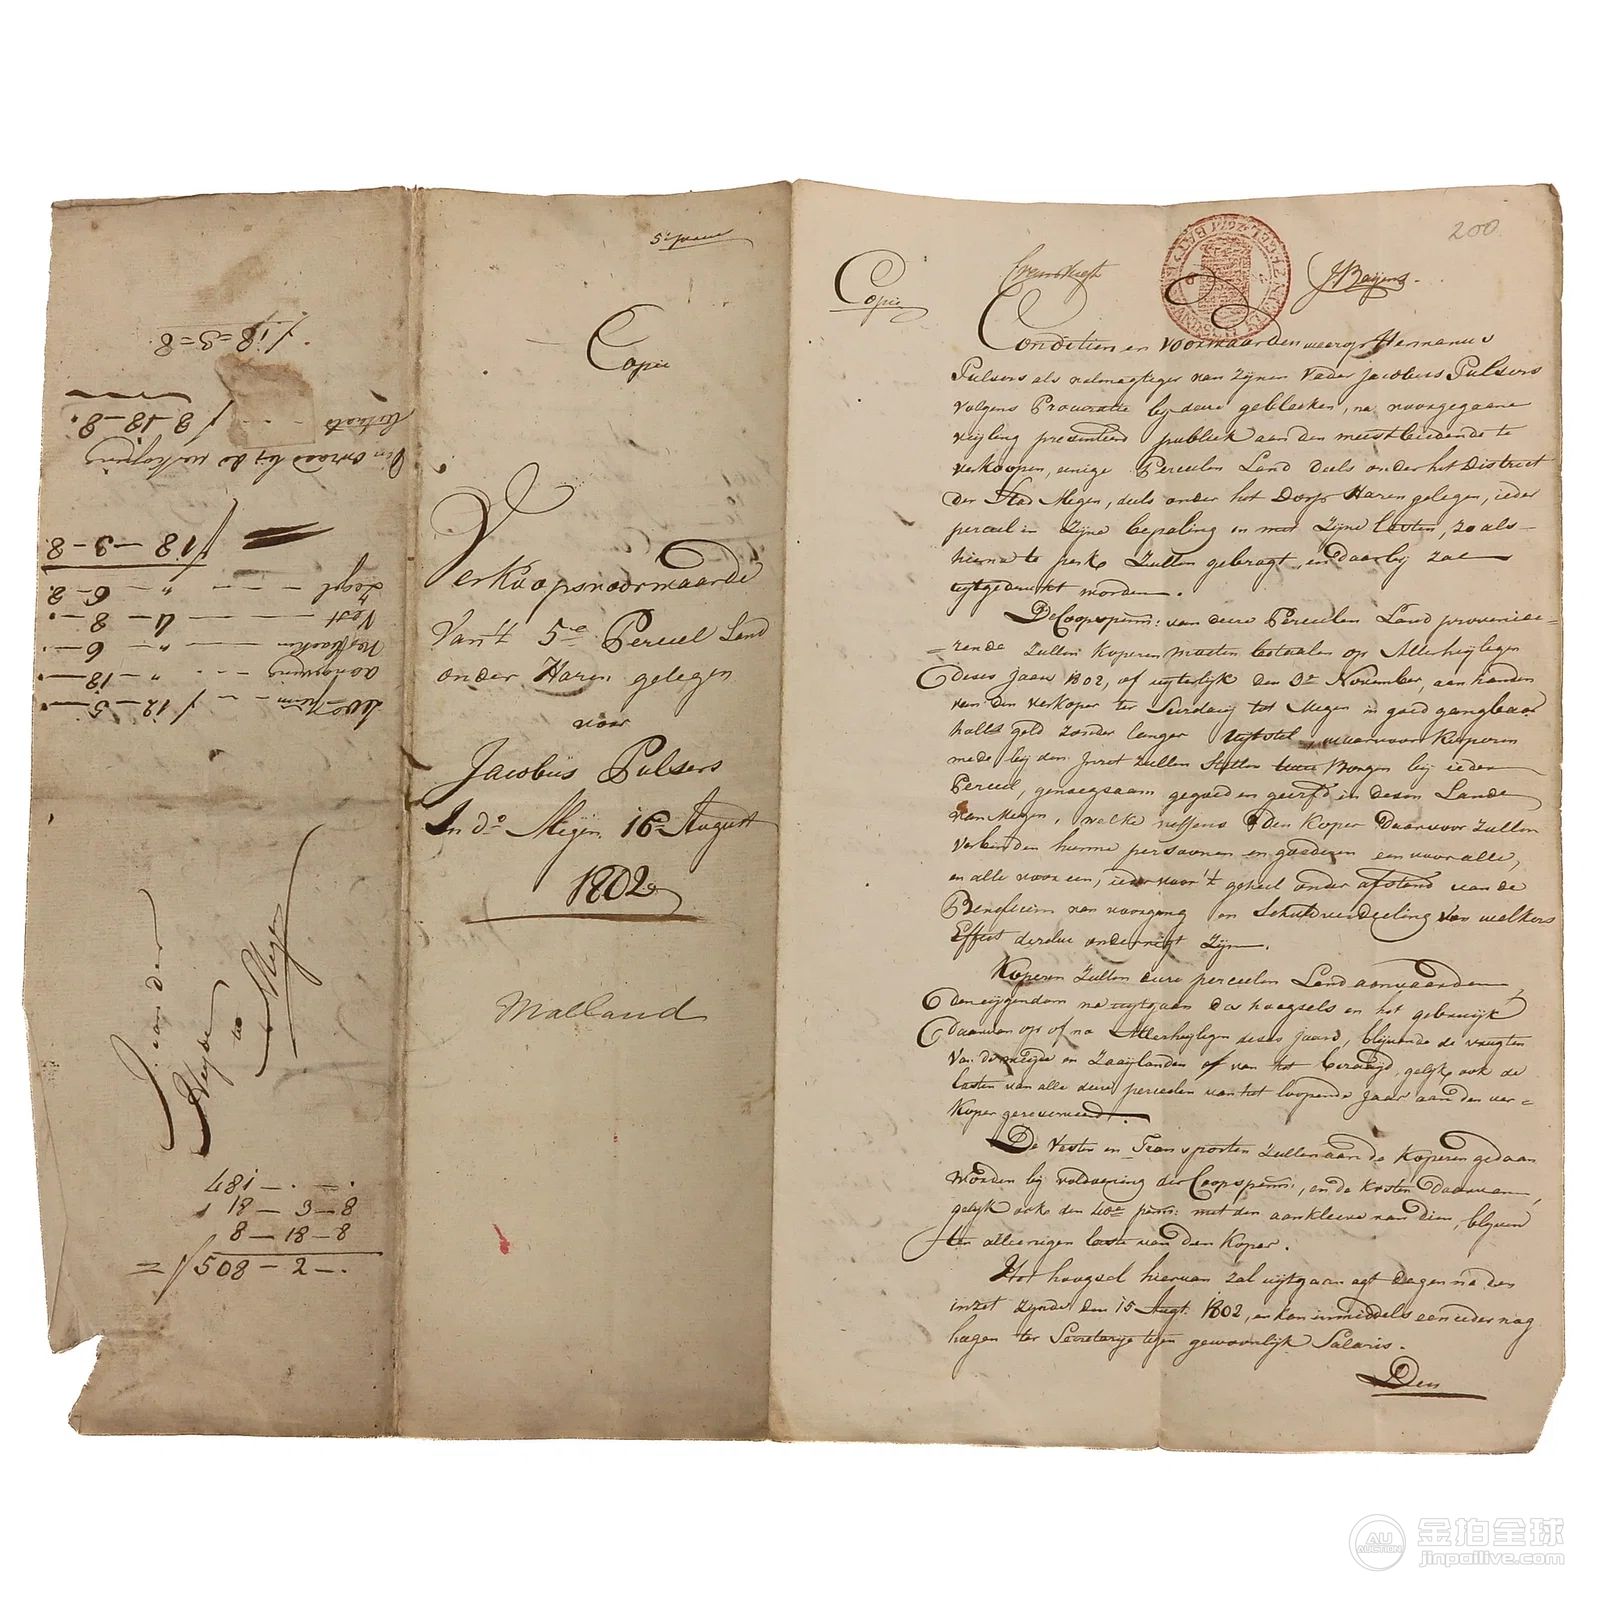 f 18=3=8.
lutaats f 8-18-8.
Den ontvaed bij de verkoping
f 18-3-8.
Zegel " 6-2.
Vest 4-8-.
" 6-.
aanhoging " 18-.
f 12-5-.
van der
Heyde
te
Megen
481-.-.
18-3-8
8-18-8
= f 508-2-.
Copie
Verkoopsvoorwaarde
Van't 5e Perceel Land
onder Haren gelegen
voor
Jacobus Pulsers
In do Megen 16e August
1802
Malland
200.
Copie
J Beijens.
Conditien en voorwaarden waerop Hermanus
Pulsers als volmagtiger van zijnen Vader Jacobus Pulsers
volgens Procuratie bij deze gebleeken, na voorgegaane
veijling presenteerd publiek aan den meestbiedende te
verkoopen, eenige Perceelen Land deels onder het District
der Stad Megen, deels onder het Dorp Haren gelegen, ieder
perceel in zijne bepaling en met zijne lasten, zo als
hierna te perk zullen gebragt, en daarbij zal
uijtgedrukt worden.
De Coopspenn: van deze Perceelen Land provenie=
=rende zullen koperen moeten betaalen op Allerheijligen
deses jaars 1802, of uijterlijk den 3e November, aan handen
van den verkoper ter Secretarij tot Megen in goed gangbaar
hollts geld zonder langer uijtstel, waarvoor Koperen
mede bij den Inzet zullen stellen twee Borgen bij ieder
Perceel, genoegsaam gegoed en geerfd in desen Lande
van Megen, welke neffens den Koper daarvoor zullen
verbinden hunne persoonen en goederen een voor alle,
en alle voor een, ieder voor 't geheel onder afstand van de
Beneficien van voorgang en Schuldverdeeling van welkers
Effect dezelve onderrigt zijn.
Koperen zullen deze perceelen Land aanvaarden,
den eijgendom na uijtgaan der hoogsels en het gebruijk
daarvan op of na Allerheijligen deses jaars, blijvende de vrugten
van de weijde en Zaaijlanden of van het beraaijd, gelijk ook de
lasten van alle deze perceelen van het loopende jaar aan den ver=
koper gereserveerd.
De Vesten en Transporten zullen aan de Koperen gedaan
worden bij voldoening der Coopspenn:, en de kosten daarvan,
gelijk ook den 40e penn: met den aankleeve van dien, blijven
ten alleenigen laste van den Koper.
Het hoogsel hiervan zal uijtgaan agt dagen na den
inzet zijnde den 15 Augt. 1802, en kan inmiddels een ieder nog
hogen ter Secretarije tegen gewoonlijk Salaris.
Den
金拍全球
AU
AUCTION
jinpailive.com